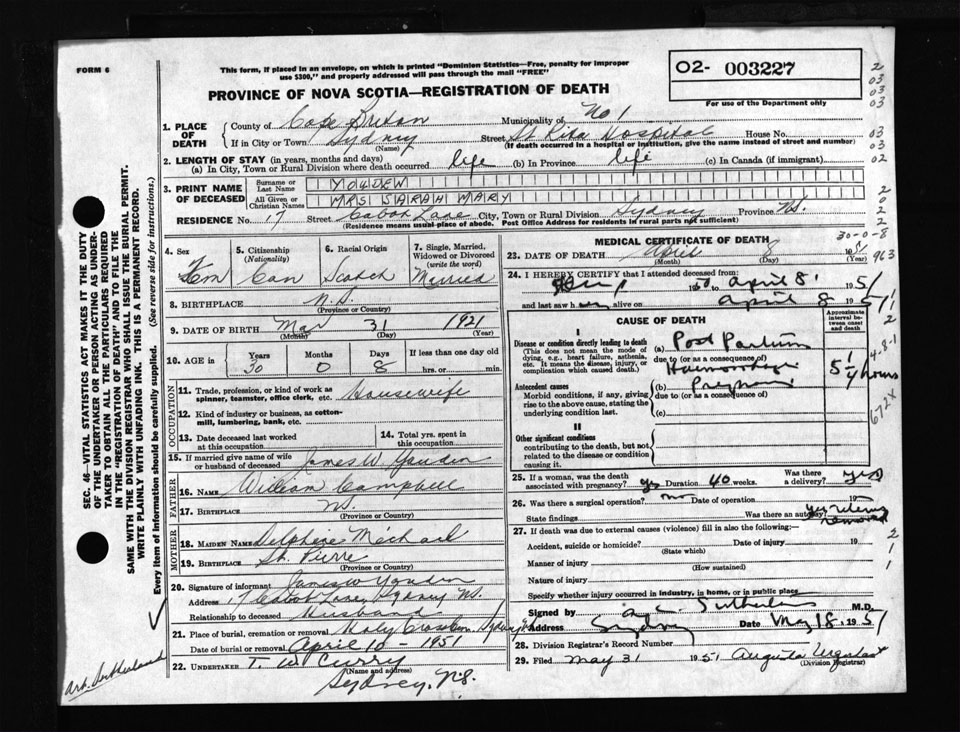 FORM 6
This form, if placed in an envelope, on which is printed "Dominion Statistics—Free, penalty for improper
use $300," and properly addressed will pass through the mail "FREE"
02- 003227
For use of the Department only
PROVINCE OF NOVA SCOTIA—REGISTRATION OF DEATH
1. PLACE OF DEATH
County of Cape Breton Municipality of No 1
If in City or Town Sydney Street St Rita Hospital House No.
(Name) (If death occurred in a hospital or institution, give the name instead of street and number)
2. LENGTH OF STAY (in years, months and days)
(a) In City, Town or Rural Division where death occurred life (b) In Province life (c) In Canada (if immigrant)
3. PRINT NAME OF DECEASED
Surname or Last Name YOUDEN
All Given or Christian Names MRS SARAH MARY
RESIDENCE No. 17 Street Cabot Lane City, Town or Rural Division Sydney Province N.S.
(Residence means usual place of abode. Post Office Address for residents in rural parts not sufficient)
4. Sex Fem
5. Citizenship (Nationality) Can
6. Racial Origin Scotch
7. Single, Married, Widowed or Divorced (write the word) Married
8. BIRTHPLACE N.S.
(Province or Country)
9. DATE OF BIRTH Mar 31 1921
(Month) (Day) (Year)
10. AGE in Years 30 Months 0 Days 8 If less than one day old
hrs. or min.
OCCUPATION
11. Trade, profession, or kind of work as spinner, teamster, office clerk, etc. Housewife
12. Kind of industry or business, as cotton-mill, lumbering, bank, etc.
13. Date deceased last worked at this occupation
14. Total yrs. spent in this occupation
15. If married give name of wife or husband of deceased James W. Youden
FATHER
16. NAME William Campbell
17. BIRTHPLACE N.S.
(Province or Country)
MOTHER
18. MAIDEN NAME Delphine Michael
19. BIRTHPLACE St. Pierre
(Province or Country)
20. Signature of informant James W Youden
Address 17 Cabot Lane, Sydney N.S.
Relationship to deceased Husband
21. Place of burial, cremation or removal Holy Cross Cem. Sydney
Date of burial or removal April 10 - 1951
22. UNDERTAKER T. W. Curry
(Name and address)
Sydney, N.S.
MEDICAL CERTIFICATE OF DEATH
30-0-8
23. DATE OF DEATH April 8 1951
(Month) (Day) (Year)
24. I HEREBY CERTIFY that I attended deceased from:
1950 to April 8 1951
and last saw h alive on April 8 1951
CAUSE OF DEATH
Approximate interval between onset and death
I
Disease or condition directly leading to death
(This does not mean the mode of dying, e.g., heart failure, asthenia, etc. It means the disease, injury, or complication which caused death.)
(a) Post Partum
due to (or as a consequence of)
Haemorrhage
5 1/4 hours
Antecedent causes
Morbid conditions, if any, giving rise to the above cause, stating the underlying condition last.
(b) Pregnancy
due to (or as consequence of)
(c)
II
Other significant conditions
contributing to the death, but not related to the disease or condition causing it.
25. If a woman, was the death associated with pregnancy? Yes Duration 40 weeks. Was there a delivery? Yes
26. Was there a surgical operation? no Date of operation 19
State findings Was there an autopsy?
27. If death was due to external causes (violence) fill in also the following:—
Accident, suicide or homicide? Date of injury 19
(State which)
Manner of injury
(How sustained)
Nature of injury
Specify whether injury occurred in industry, in home, or in public place
Signed by A. L. Sutherland M.D.
Address Sydney Date May 18, 1951
28. Division Registrar's Record Number
29. Filed May 31 1951 Augusta Urquhart
(Division Registrar)
SEC. 46—VITAL STATISTICS ACT MAKES IT THE DUTY
OF THE UNDERTAKER OR PERSON ACTING AS UNDER-
TAKER TO OBTAIN ALL THE PARTICULARS REQUIRED
IN THE "REGISTRATION OF DEATH" AND TO FILE THE
SAME WITH THE DIVISION REGISTRAR WHO SHALL ISSUE THE BURIAL PERMIT.
WRITE PLAINLY WITH UNFADING INK. THIS IS A PERMANENT RECORD.
Every item of information should be carefully supplied. (See reverse side for instructions.)
2
03
03
03
03
03
02
2
0
2
2
963
2
4-8-1
672X
2
1
1